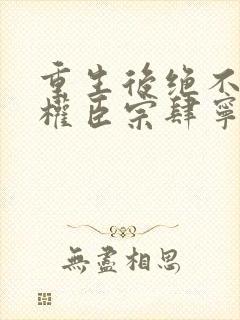 重生後绝不
權臣宗肆寧
無盡相思